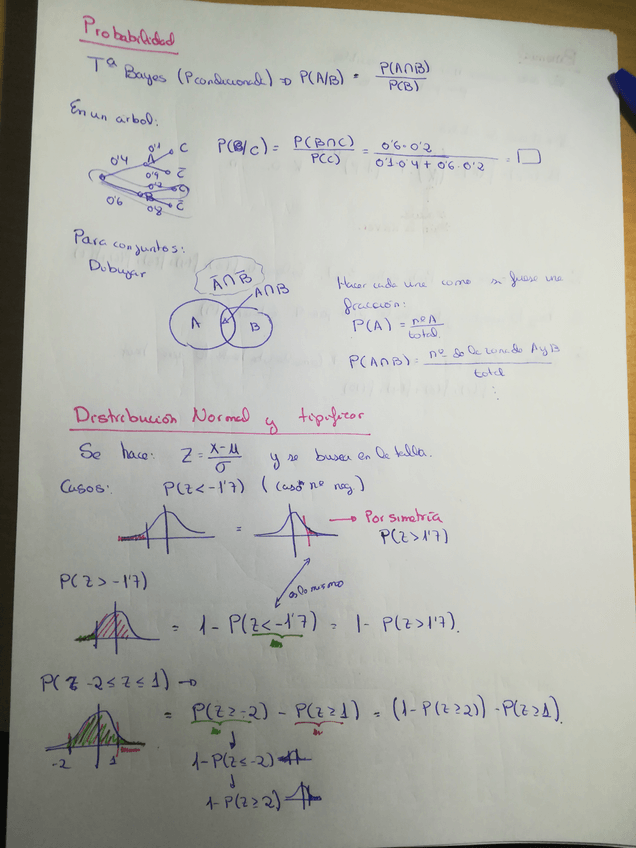 Probabilidad
Tª Bayes (P condicionada) ⇒ P(A/B) = P(A∩B) / P(B)
En un arbol:
0'4 A 0'1 C
0'9 C̅
0'6 B 0'2 C
0'8 C̅
P(B/C) = P(B∩C) / P(C) = 0'6·0'2 / 0'1·0'4 + 0'6·0'2 = □
Para conjuntos:
Dibujar
A̅∩B̅
A∩B
A B
Hacer cada una como si fuese una
fracción:
P(A) = nº A / total
P(A∩B) = nº de la A y B / total
⋮
Distribución Normal y tipificar
Se hace: Z = x-μ / σ y se busca en la tabla.
Casos: P(Z<-1'7) (caso nº neg.)
= → Por simetría
P(Z>1'7)
es lo mismo
P(Z>-1'7)
= 1-P(Z<-1'7) = 1- P(Z>1'7).
P(Z -2≤Z≤1) →
-2 1
= P(Z≥-2) - P(Z≥1) = (1-P(Z≥2)) - P(Z≥1).
1-P(Z≤-2)
1-P(Z≥2)